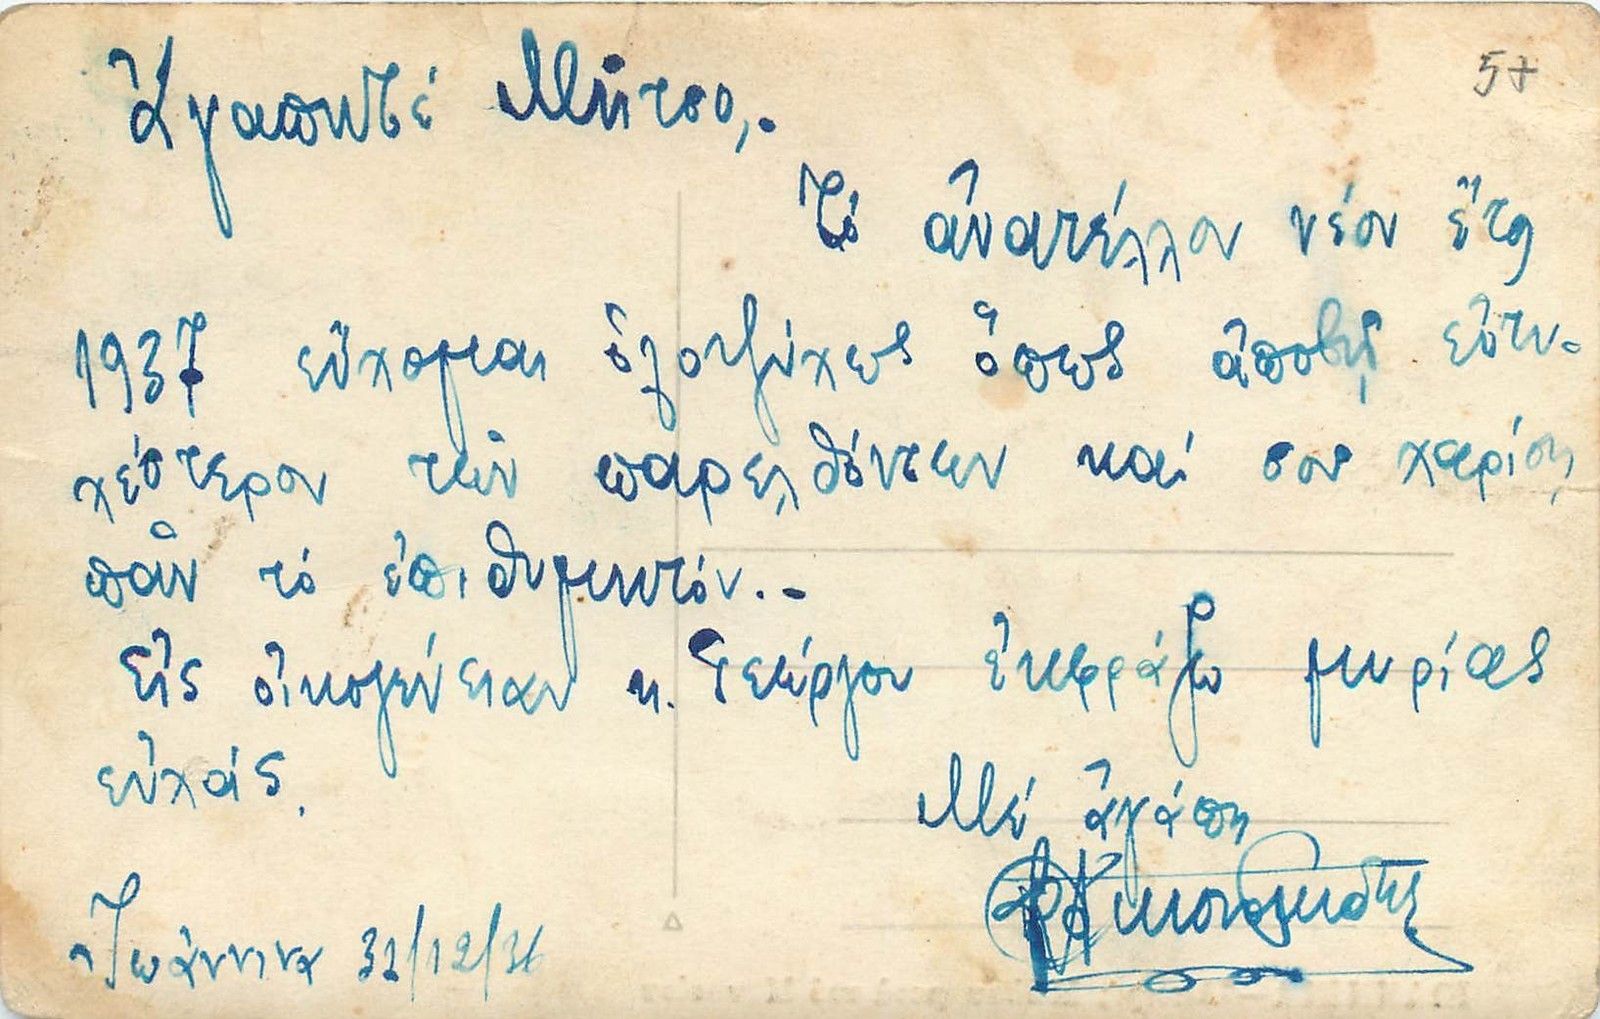 57
Ἀγαπητέ Μῆτσο,.
Τό ἀνατέλλον νέον ἔτος
1937 εὔχομαι ὁλοψύχως ὅπως ἀποβῇ εὐτυ-
χέστερον τῶν παρελθόντων καί σου χαρίσῃ
πᾶν τό ἐπιθυμητόν.-
Εἰς οἰκογένειαν κ. Γεώργου ἐκφράζω μυρίας
εὐχάς.
Μέ ἀγάπη
Ἰωάννινα 31/12/36